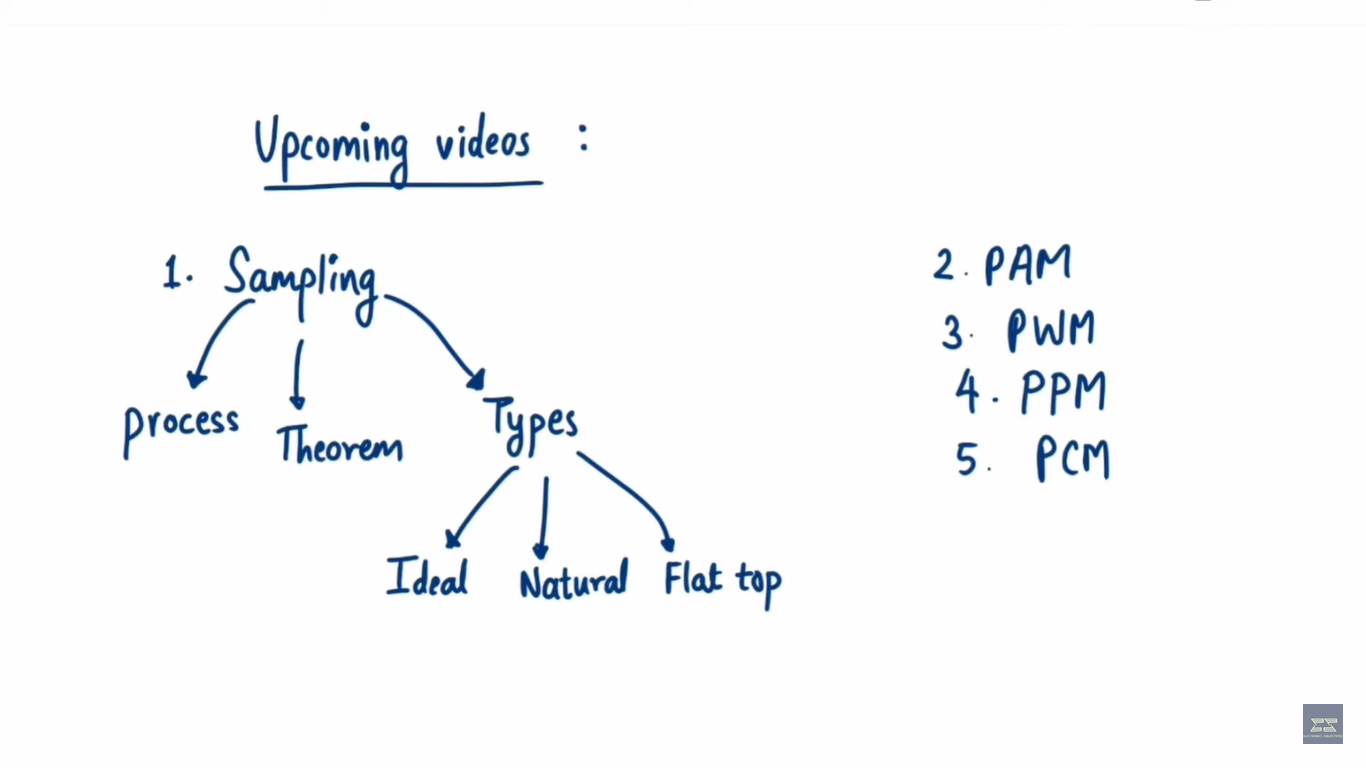 Upcoming videos :
1. Sampling
Process
Theorem
Types
Ideal
Natural
Flat top
2. PAM
3. PWM
4. PPM
5. PCM